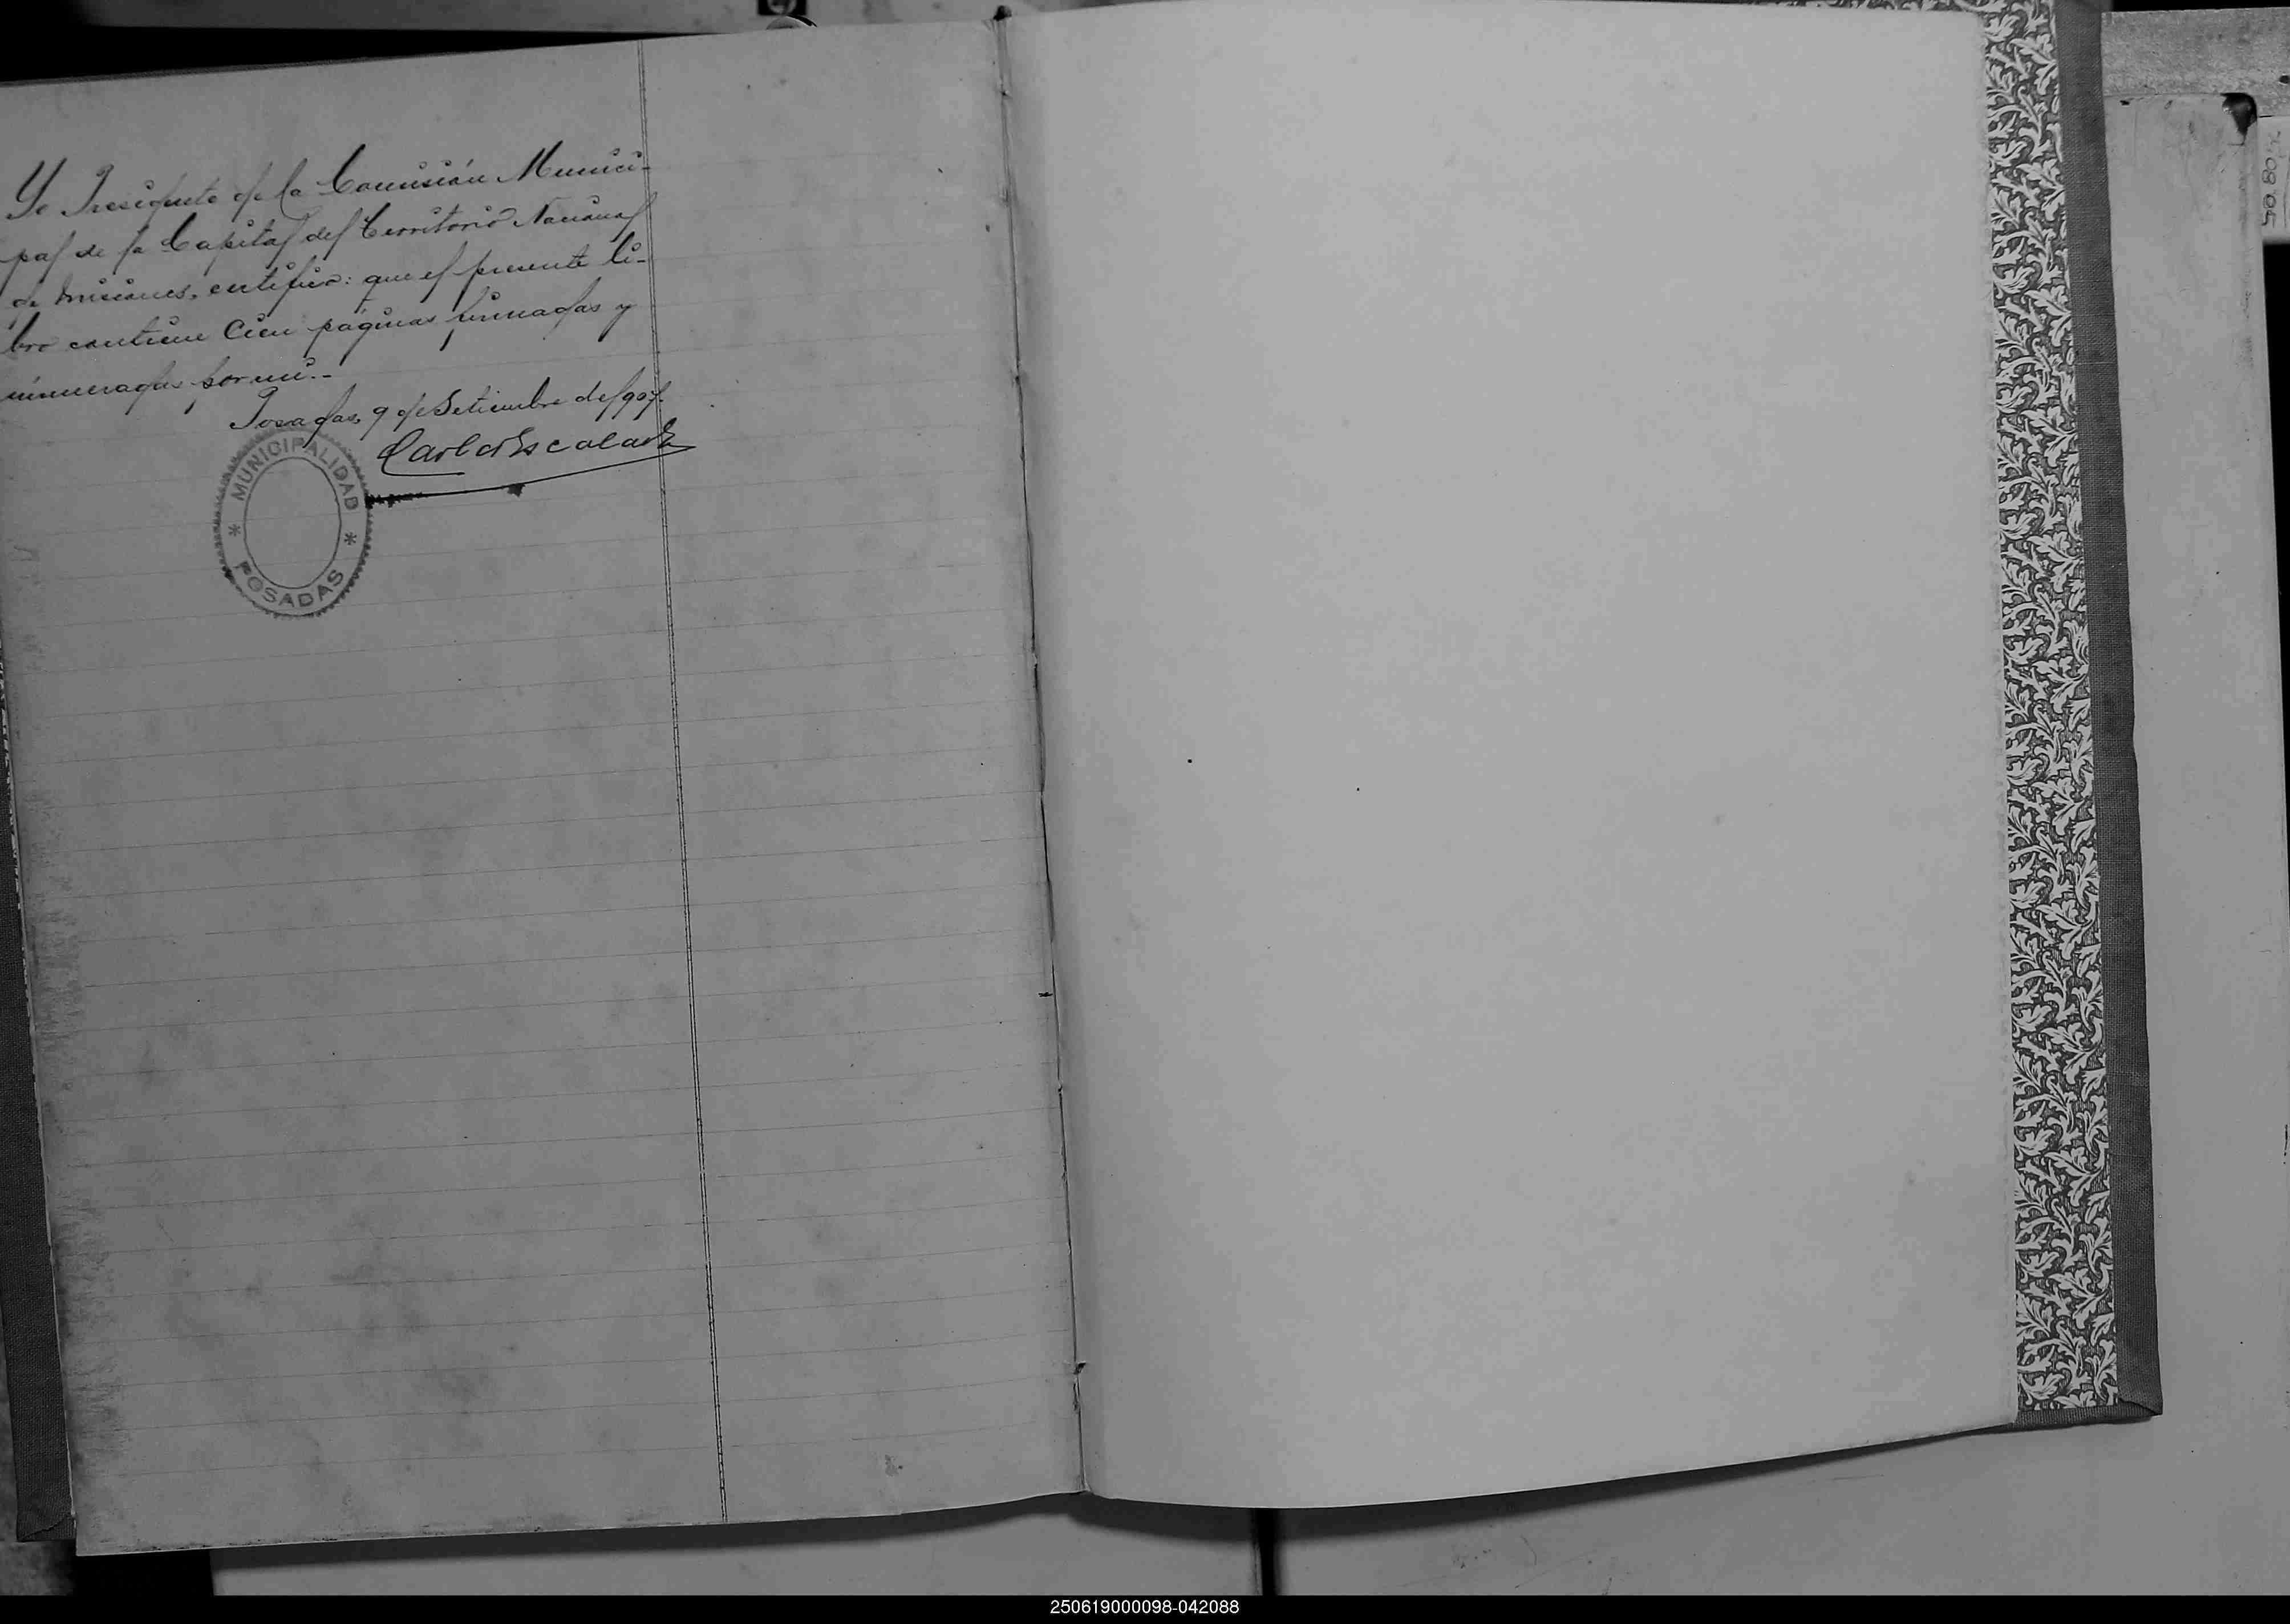 Yo Presidente de la Comisión Munici-
pal de la Capital del Territorio Nacional
de Misiones, certifico: que el presente li-
bro contiene Cien páginas firmadas y
númeradas por mi.-
Posadas, 9 de Setiembre de 1907.
Carlos Escalada
MUNICIPALIDAD
* *
POSADAS
250619000098-042088